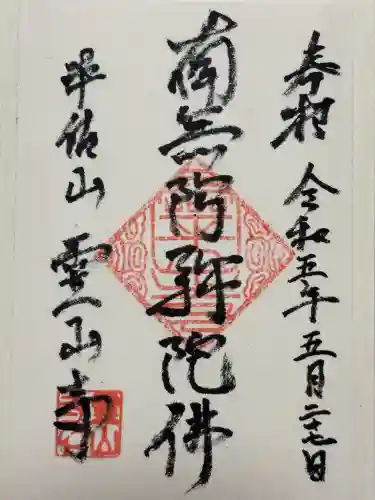 奉拝 令和五年五月二十七日
南無阿弥陀佛
半佐山 霊山寺